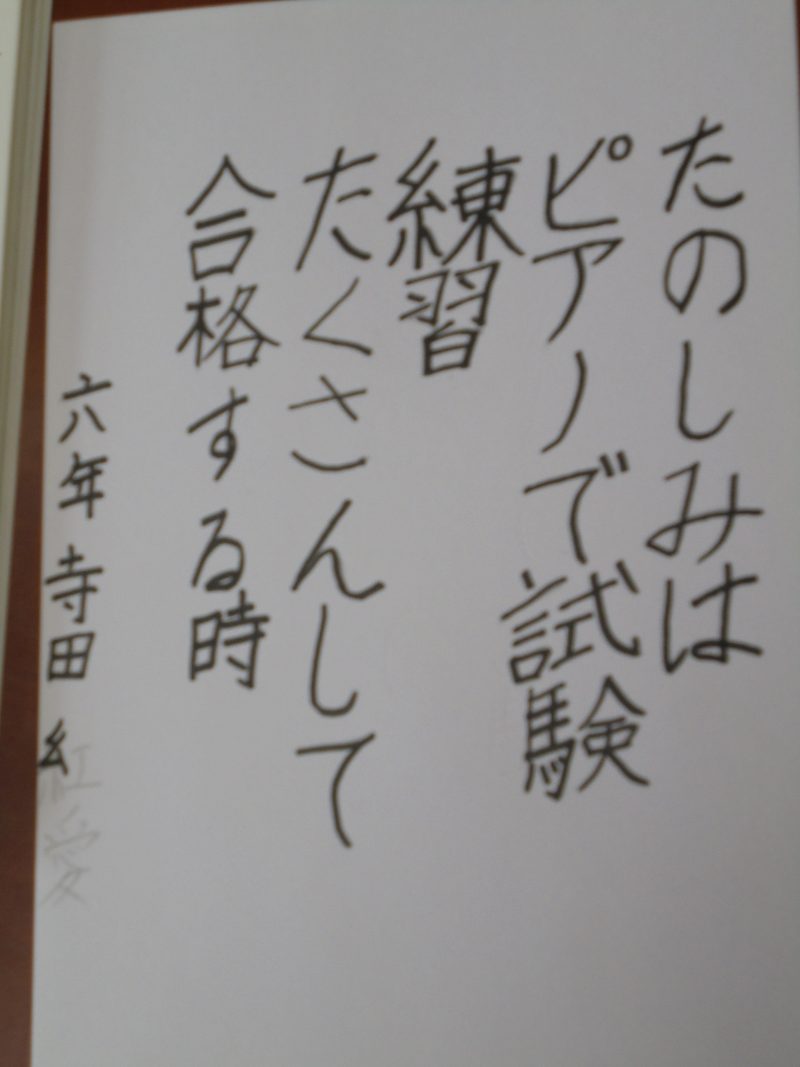 たのしみは
ピアノで試験
練習
たくさんして
合格する時
六年 寺田 紅愛